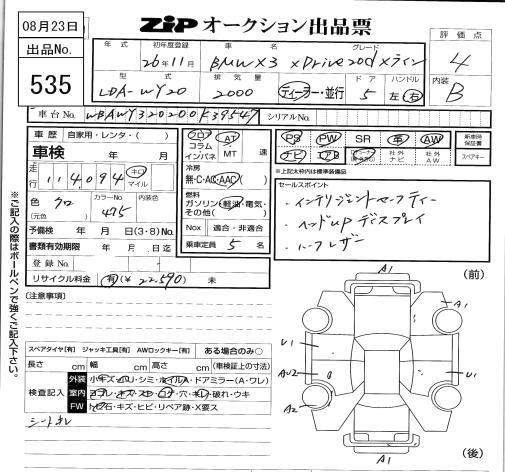 08月23日
出品No.
535
ZIP オークション出品票
評価点
4
内装
B
年式
初年度登録
26年11月
車名
グレード
BMW X3 xDrive20d Xライン
型式
LDA-WY20
排気量
2000
ディーラー・並行
ドア
5
ハンドル
左・右
車台No.
WBAWY320200K39547
シリアルNo.
車歴 自家用・レンタ・( )
車検 年 月
走行 114,094 キロ マイル
色 クロ
(元色)
カラーNo.
475
内装色
予備検 年 月 日(3・8)No.
書類有効期限 年 月 日迄
登録No.
リサイクル料金 有(¥ 22,590) 未
フロア
コラム
インパネ
AT
MT 速
冷房
無・C・AC・AAC
燃料
ガソリン・軽油・電気・
その他( )
Nox 適合・非適合
乗車定員 5 名
PS PW SR 革 AW
ナビ エアB
社外ナビ
社外AW
新車時保証書
スペアキー
※上記太枠内は標準装備品
セールスポイント
・インテリジェントセーフティー
・ヘッドupディスプレイ
・ハーフレザー
※ご記入の際はボールペンで強くご記入下さい。
[注意事項]
スペアタイヤ[有] ジャッキ工具[有] AWロックキー[有] ある場合のみ○
長さ cm 幅 cm 高さ cm (車検証上の寸法)
検査記入
外装 小キズ・ハリ・シミ・ホイルA・ドアミラー(A・ワレ)
室内 ヨゴレ・キズ・スレ・コゲ・穴・キレ・破れ・ウキ
FW トビ石・キズ・ヒビ・リペア跡・X要ス
シートスレ
(前)
A1
A1
U1
AU2
U1
A2
A1
(後)